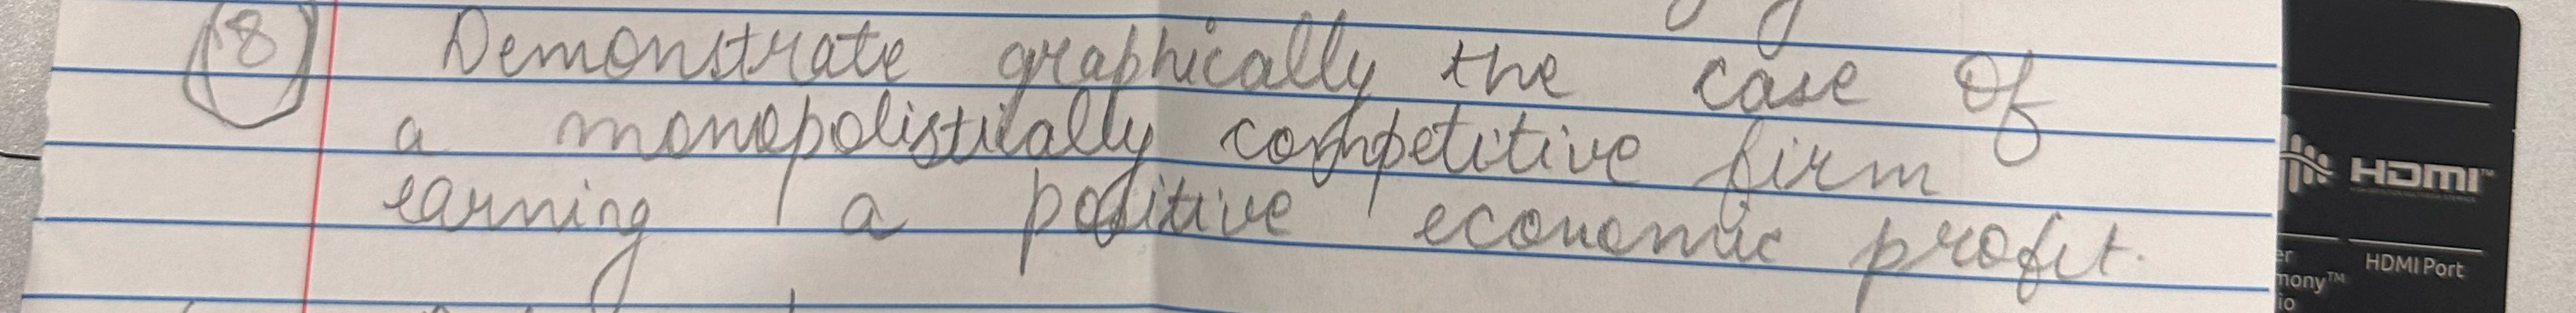 (8) Demonstrate graphically the case of
a monopolistically competitive firm
earning a positive economic profit.
HDMI™
HDMI Port
er
mony™
io